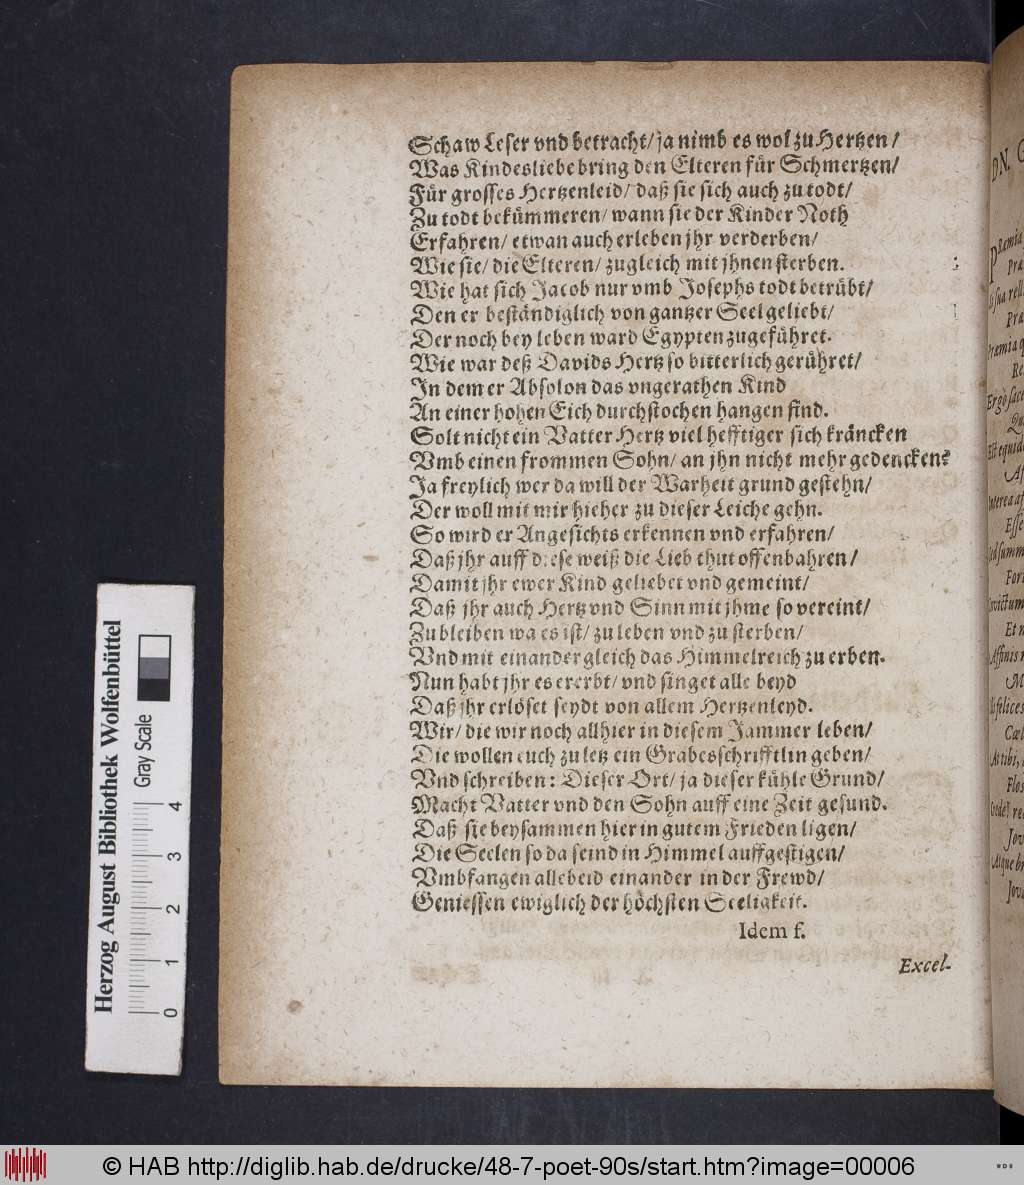 Schaw Leser vnd betracht/ ja nimb es wol zu Hertzen/
Was Kindesliebe bring den Elteren für Schmertzen/
Für grosses Hertzenleid/ daß sie sich auch zu todt/
Zu todt bekümmeren/ wann sie der Kinder Noth
Erfahren/ etwan auch erleben jhr verderben/
Wie sie/ die Elteren/ zugleich mit jhnen sterben.
Wie hat sich Jacob nur vmb Josephs todt betrübt/
Den er beständiglich von gantzer Seel geliebt/
Der noch bey leben ward Egypten zugeführet.
Wie war deß Davids Hertz so bitterlich gerühret/
In dem er Absolon das vngerathen Kind
An einer hohen Eich durchstochen hangen find.
Solt nicht ein Vatter Hertz viel hefftiger sich kräncken
Vmb einen frommen Sohn/ an jhn nicht mehr gedencken?
Ja freylich wer da will der Warheit grund gestehn/
Der woll mit mir hieher zu dieser Leiche gehn.
So wird er Angesichts erkennen vnd erfahren/
Daß jhr auff diese weiß die Lieb thut offenbahren/
Damit jhr ewer Kind geliebet vnd gemeint/
Daß jhr auch Hertz vnd Sinn mit jhme so vereint/
Zu bleiben wa es ist/ zu leben vnd zu sterben/
Vnd mit einander gleich das Himmelreich zu erben.
Nun habt jhr es ererbt/ vnd singet alle beyd
Daß jhr erlöset seydt von allem Hertzenleyd.
Wir/ die wir noch allhier in diesem Jammer leben/
Die wollen euch zu letz ein Grabesschrifftlin geben/
Vnd schreiben: Dieser Ort/ ja dieser kühle Grund/
Macht Vatter vnd den Sohn auff eine Zeit gesund.
Daß sie beysammen hier in gutem Frieden ligen/
Die Seelen so da seind in Himmel auffgestigen/
Vmbfangen allebeid einander in der Frewd/
Geniessen ewiglich der höchsten Seeligkeit.
Idem f.
Excel-
Herzog August Bibliothek Wolfenbüttel
Gray Scale
0 1 2 3 4
DN.
© HAB http://diglib.hab.de/drucke/48-7-poet-90s/start.htm?image=00006